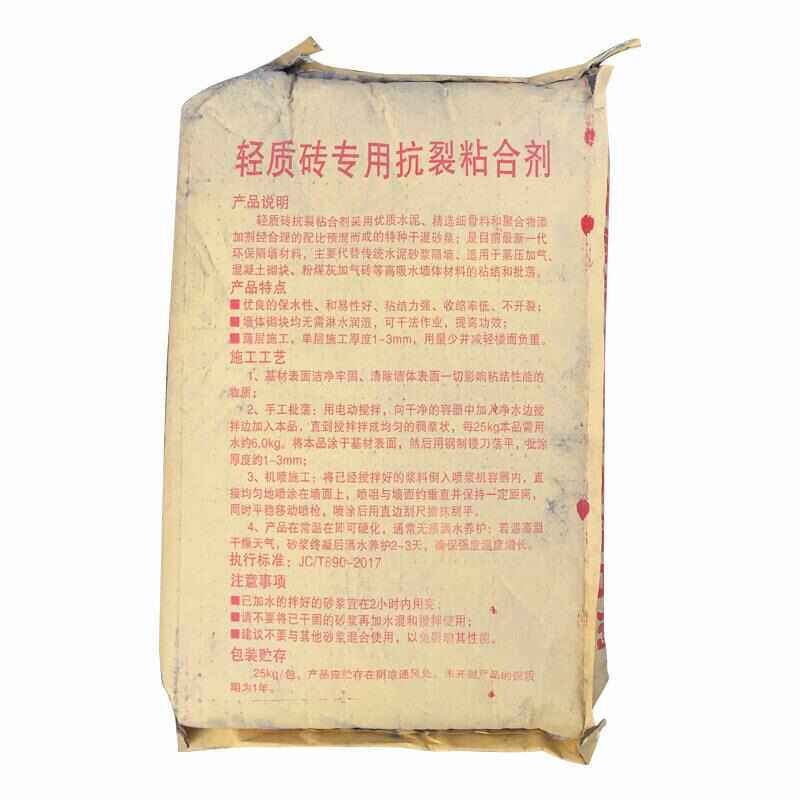 轻质砖专用抗裂粘合剂
产品说明
轻质砖抗裂粘合剂采用优质水泥、精选细骨料和聚合物添
加剂经合理的配比预混而成的特种干混砂浆；是目前最新一代
环保隔墙材料，主要代替传统水泥砂浆隔墙、适用于蒸压加气、
混凝土砌块、粉煤灰加气砖等高吸水墙体材料的粘结和批荡。
产品特点
■优良的保水性、和易性好、粘结力强、收缩率低、不开裂；
■墙体砌块均无需淋水润湿，可干法作业，提高功效；
■薄层施工，单层施工厚度1-3mm，用量少并减轻楼面负重。
施工工艺
1、基材表面洁净牢固、清除墙体表面一切影响粘结性能的
物质；
2、手工批荡：用电动搅拌，向干净的容器中加入净水边搅
拌边加入本品，直到搅拌拌成均匀的稠浆状，每25kg本品需用
水约6.0kg。将本品涂于基材表面，然后用钢制镘刀荡平，批涂
厚度约1-3mm；
3、机喷施工：将已经搅拌好的浆料倒入喷浆机容器内，直
接均匀地喷涂在墙面上，喷咀与墙面约垂直并保持一定距离，
同时平稳移动喷枪，喷涂后用直边刮尺擀抹刮平。
4、产品在常温在即可硬化，通常无须洒水养护；若遇高温
干燥天气，砂浆终凝后洒水养护2-3天，确保强度温度增长。
执行标准：JC/T890-2017
注意事项
■已加水的拌好的砂浆宜在2小时内用完；
■请不要将已干固的砂浆再加水混和搅拌使用；
■建议不要与其他砂浆混合使用，以免影响其性能。
包装贮存
25kg/包，产品应贮存在阴凉通风处，未开封产品的保质
期为1年。